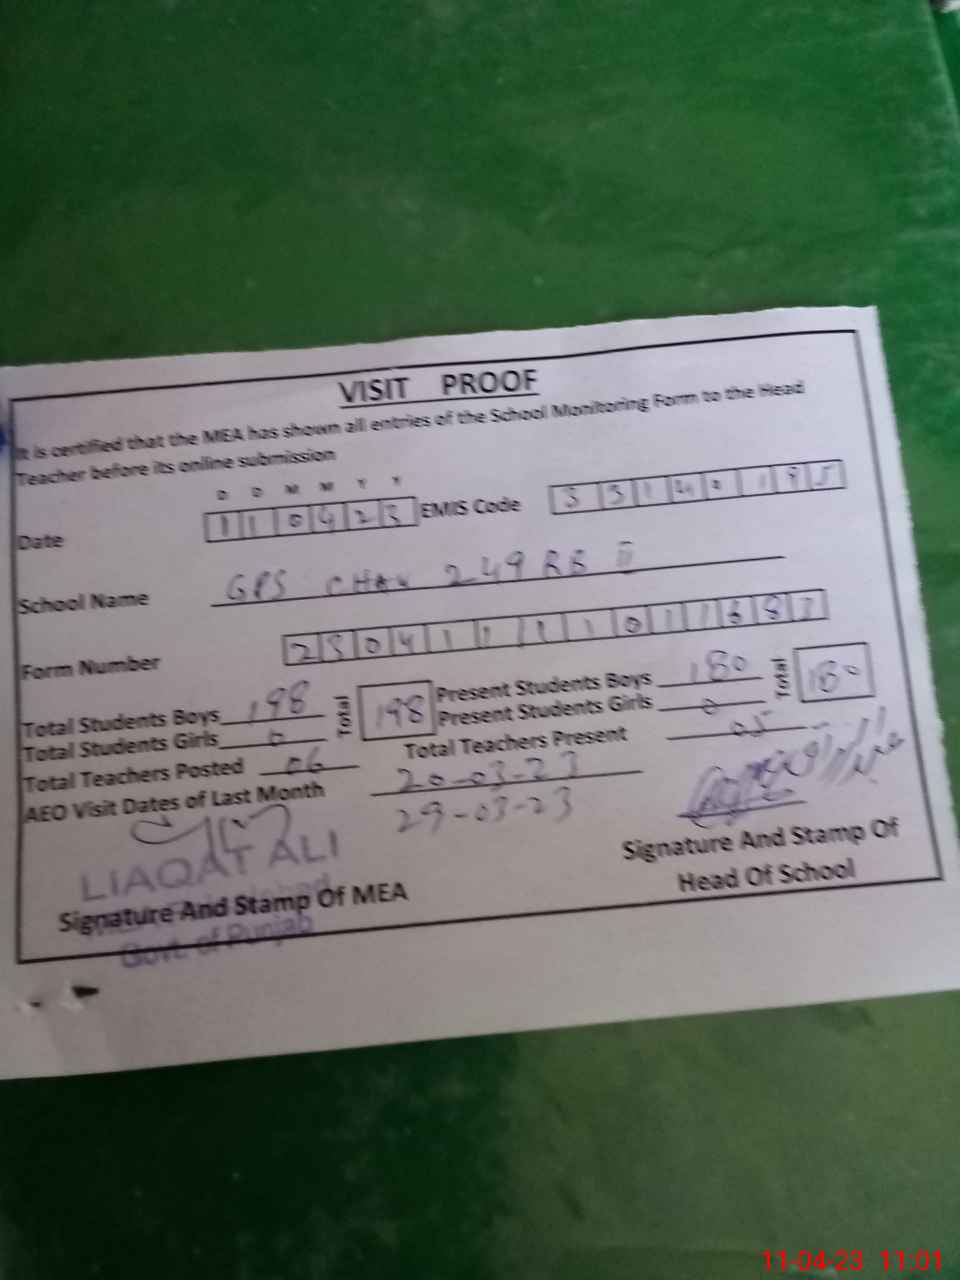 VISIT PROOF
It is certified that the MEA has shown all entries of the School Monitoring Form to the Head
Teacher before its online submission
D D M M Y Y
Date 110423 EMIS Code 33120195
School Name GPS CHAK 249 RB II
Form Number
Total Students Boys 198 Total 198 Present Students Boys 180 Total 180
Total Students Girls 0 Present Students Girls 0
Total Teachers Posted 06 Total Teachers Present 05
AEO Visit Dates of Last Month 20-03-23
29-03-23
LIAQAT ALI
Signature And Stamp Of MEA
Govt. of Punjab
Signature And Stamp Of
Head Of School
11-04-23 11:01